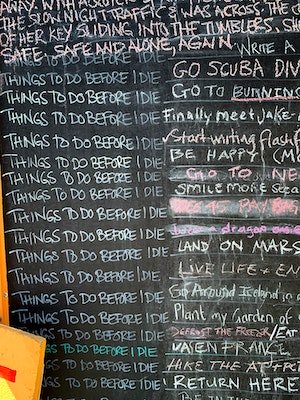 AWAY. WITH
THE SLOW NIGHT TRAFFIC & WAS ACROSS. THE C
OF HER KEY SLIDING INTO THE TUMBLERS. SH
SAFE. SAFE AND ALONE, AGAIN. WRITE A
THINGS TO DO BEFORE I DIE GO SCUBA DIV
THINGS TO DO BEFORE I DIE GO TO BURNING
THINGS TO DO BEFORE I DIE Finally meet Jake
THINGS TO DO BEFORE I DIE Start writing flash
THINGS TO DO BEFORE I DIE BE HAPPY (M
THINGS TO DO BEFORE I DIE GO TO NE
THINGS TO DO BEFORE I DIE SMILE MORE
THINGS TO DO BEFORE I DIE PAY
THINGS TO DO BEFORE I DIE a dragon
THINGS TO DO BEFORE I DIE LAND ON MARS
THINGS TO DO BEFORE I DIE LIVE LIFE + EN
THINGS TO DO BEFORE I DIE Go Around Iceland in a
THINGS TO DO BEFORE I DIE Plant my Garden of
THINGS TO DO BEFORE I DIE DEFROST THE FREEZER/EAT
THINGS TO DO BEFORE I DIE FRANCE
THINGS TO DO BEFORE I DIE HIKE THE AT
THINGS TO DO BEFORE I DIE RETURN HERE
BE IN THE